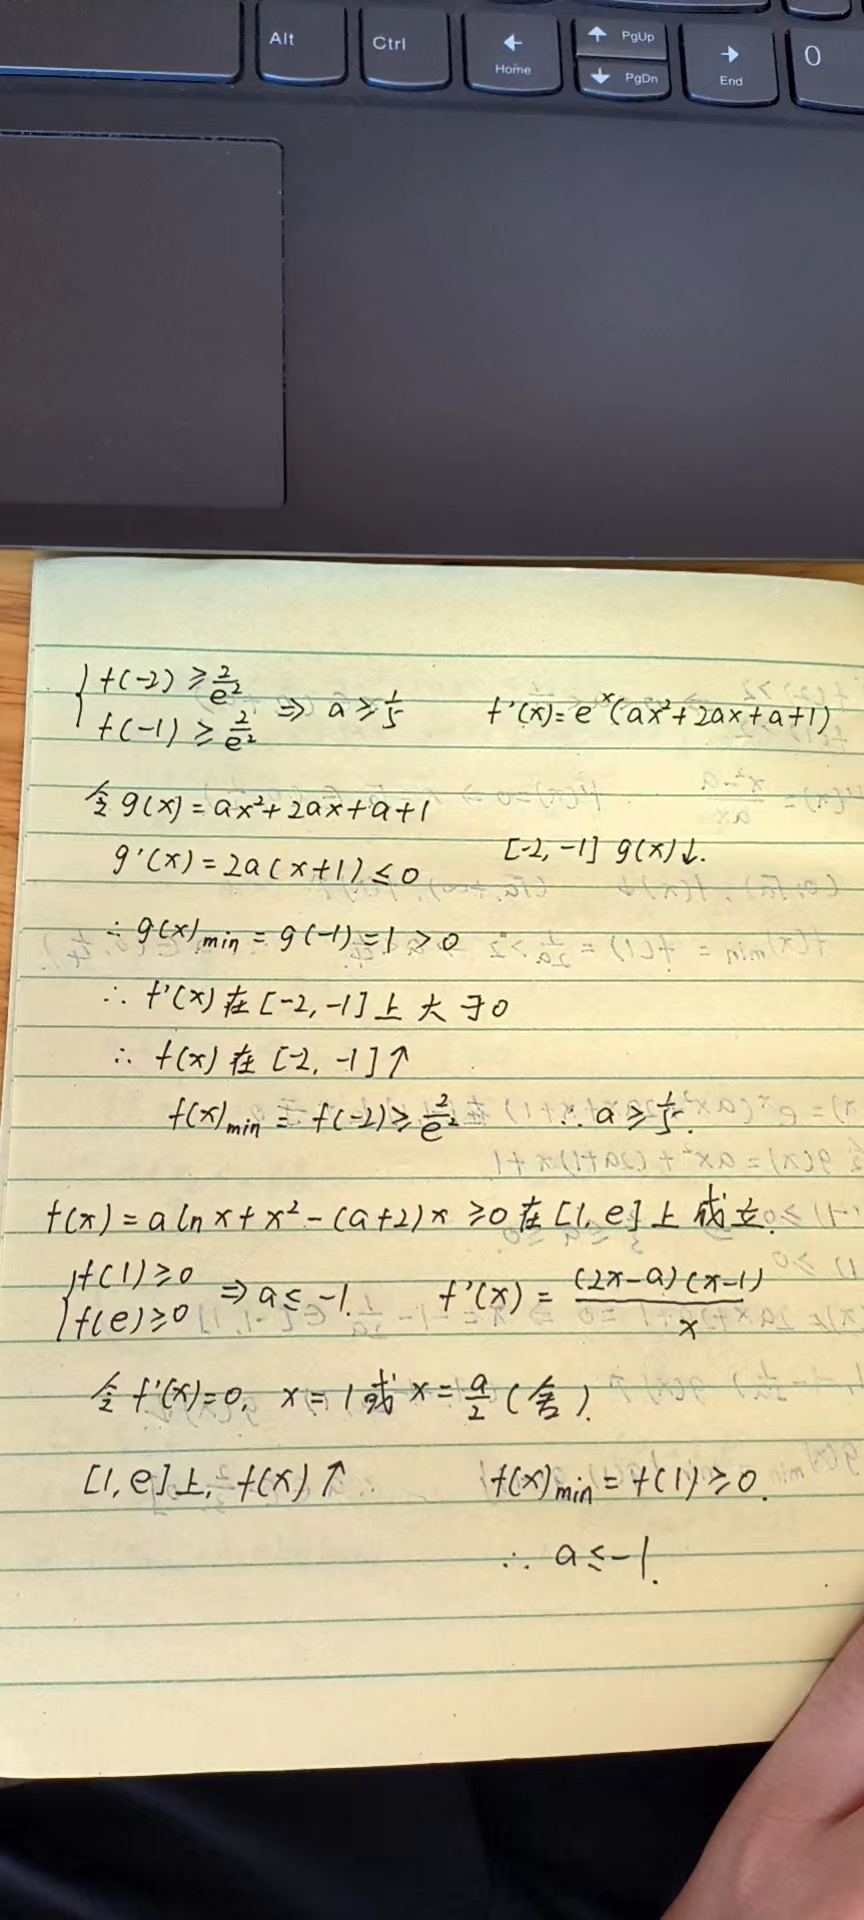 Alt Ctrl ← Home ↑ PgUp ↓ PgDn → End 0
{ f(-2) ≥ 2/e² f(-1) ≥ 2/e² ⇒ a ≥ 1/5 f'(x) = eˣ(ax²+2ax+a+1)
令 g(x) = ax²+2ax+a+1
g'(x) = 2a(x+1) ≤ 0 [-2, -1] g(x)↓.
∴ g(x)min = g(-1) = 1 > 0
∴ f'(x) 在 [-2, -1] 上 大于0
∴ f(x) 在 [-2, -1] ↑
f(x)min = f(-2) ≥ 2/e² ∴ a ≥ 1/5.
f(x) = a ln x + x² - (a+2)x ≥ 0 在 [1, e] 上 成立.
{ f(1) ≥ 0 f(e) ≥ 0 ⇒ a ≤ -1. f'(x) = (2x-a)(x-1)/x
令 f'(x)=0, x = 1 或 x = a/2 (舍).
[1, e] 上, f(x) ↑ f(x)min = f(1) ≥ 0.
∴ a ≤ -1.